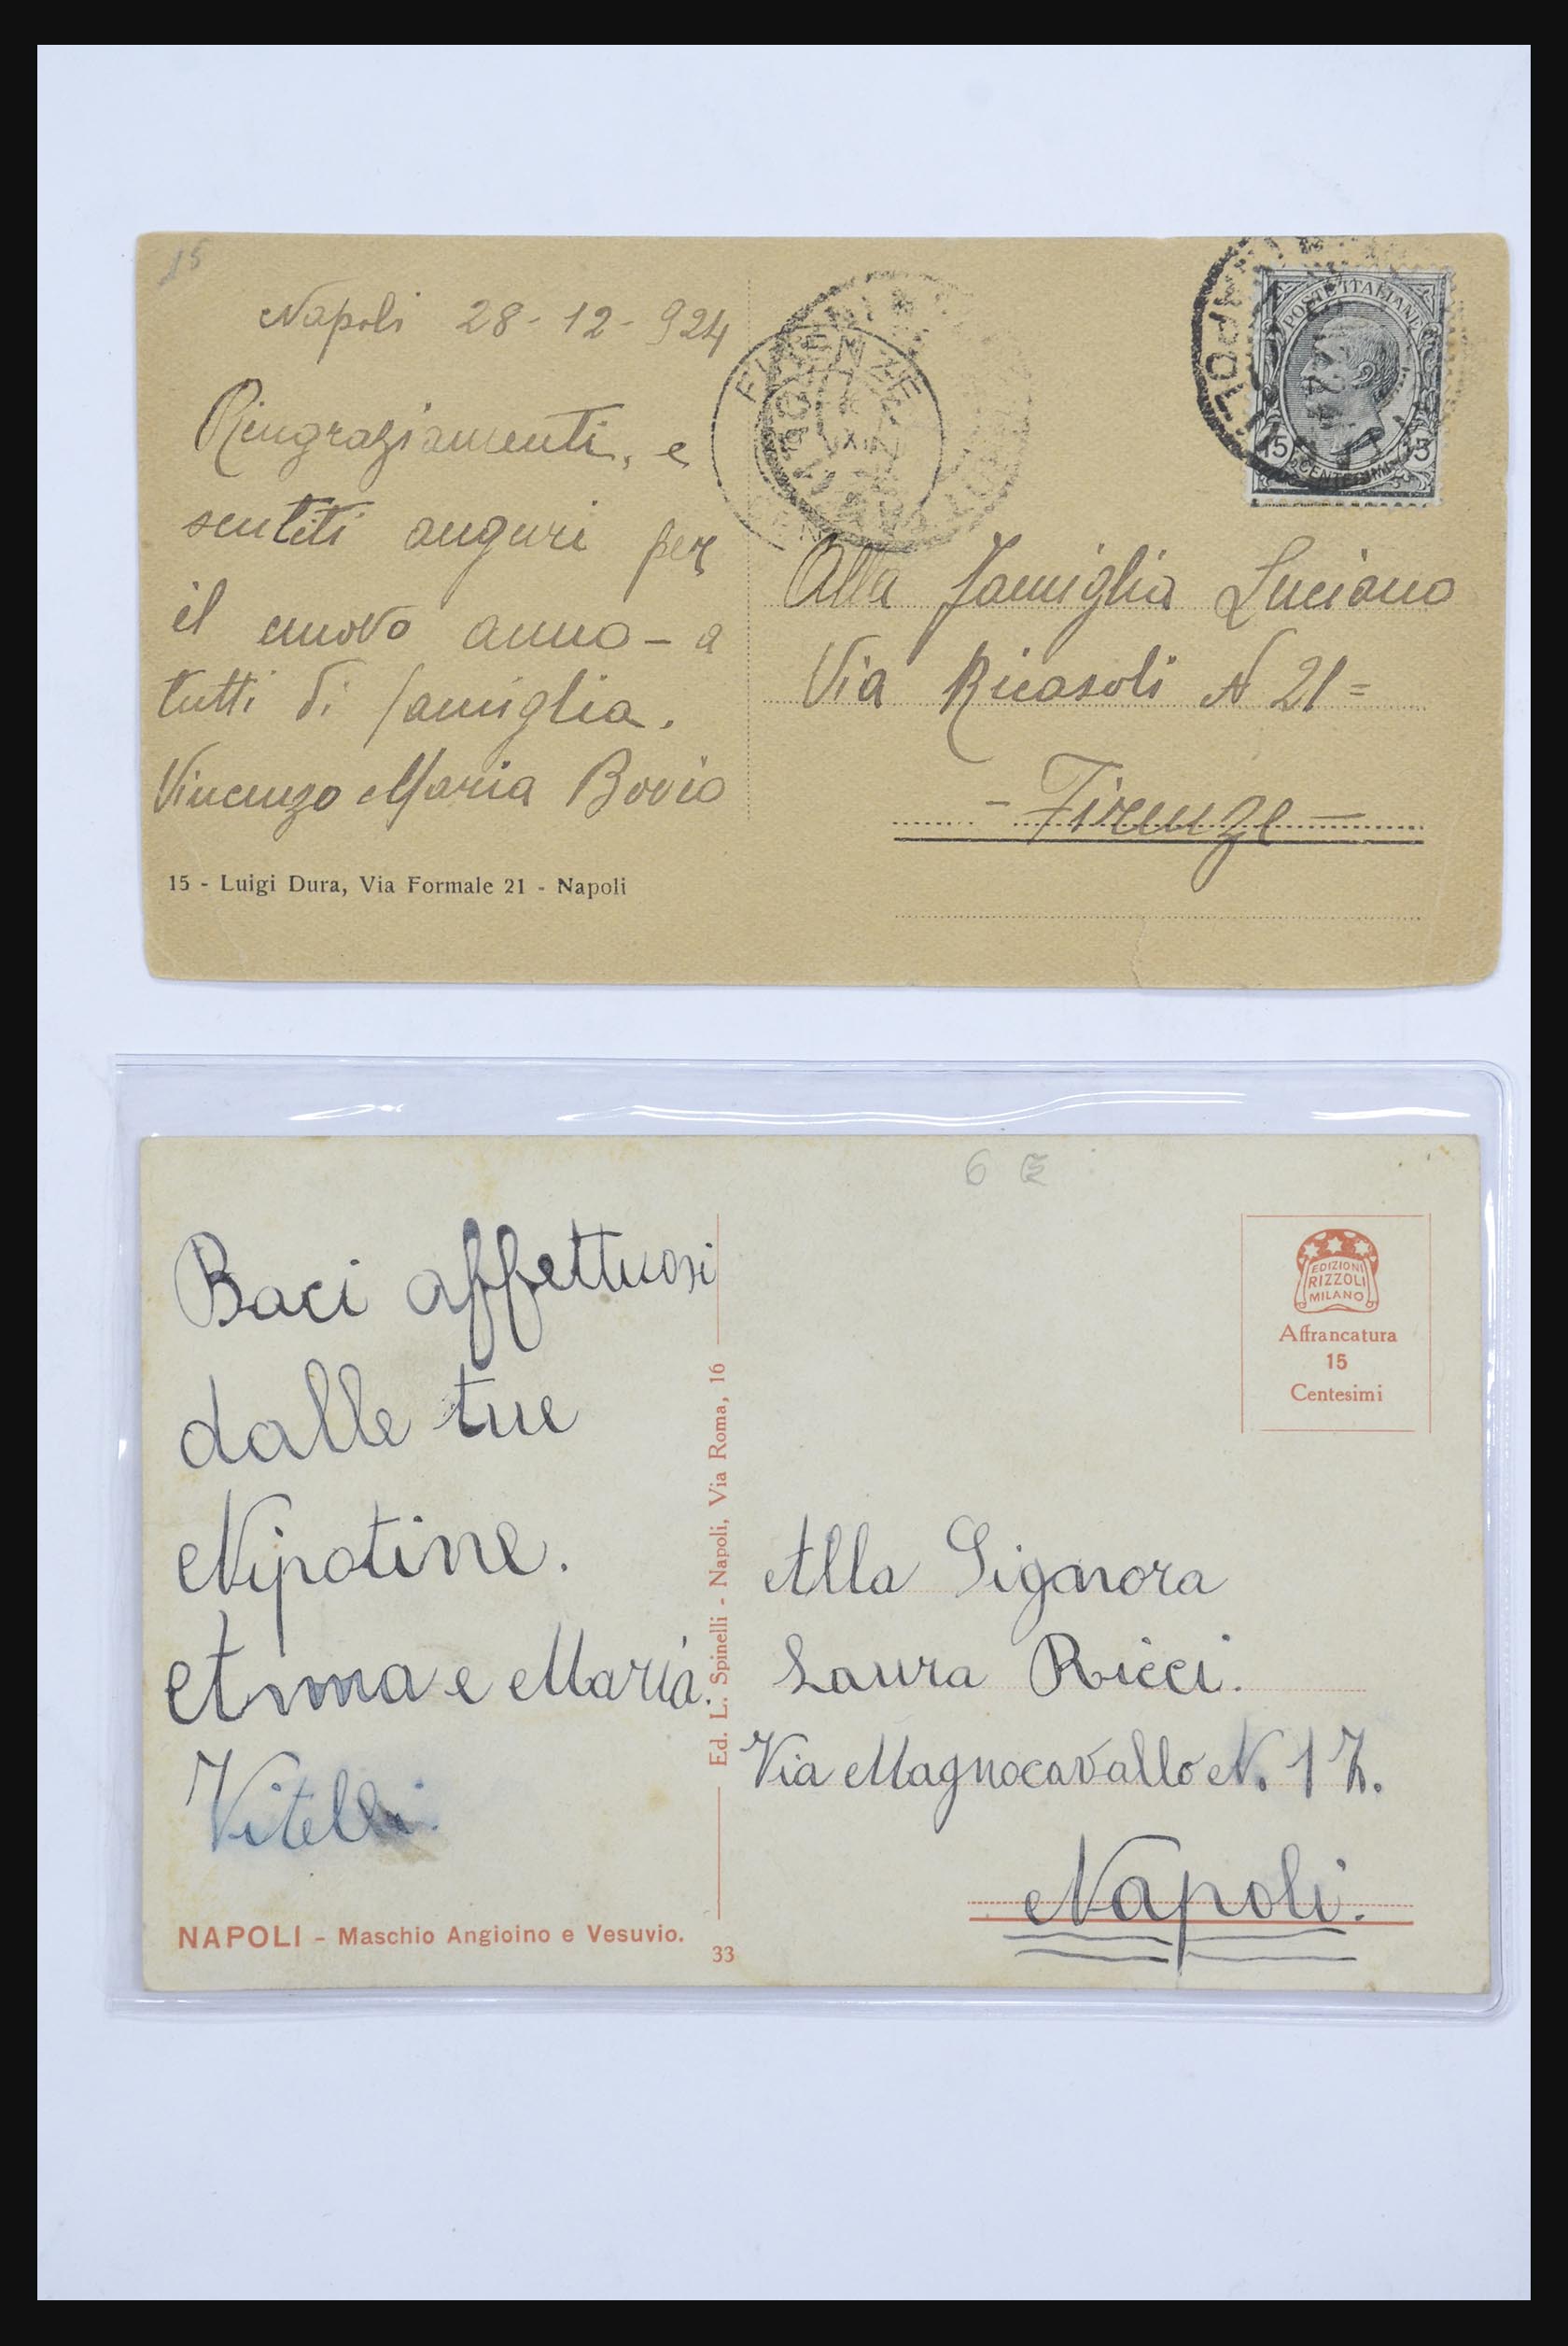 15
Napoli 28-12-924
Ringraziamenti, e
sentiti auguri per
il nuovo anno - a
tutti di famiglia.
Vincenzo Maria Bovio
15 - Luigi Dura, Via Formale 21 - Napoli
FIRENZE
NAPOLI
POSTE ITALIANE
15 CENTESIMI 15
Alla famiglia Luciano
Via Ricasoli N 21=
- Firenze -
6
Baci affettuosi
dalle tue
Nipotine.
Anna e Maria.
Vitelli.
NAPOLI - Maschio Angioino e Vesuvio.
Ed. L. Spinelli - Napoli, Via Roma, 16
33
EDIZIONI
RIZZOLI
MILANO
Affrancatura
15
Centesimi
Alla Signora
Laura Ricci.
Via Magnocavallo N. 17.
Napoli.